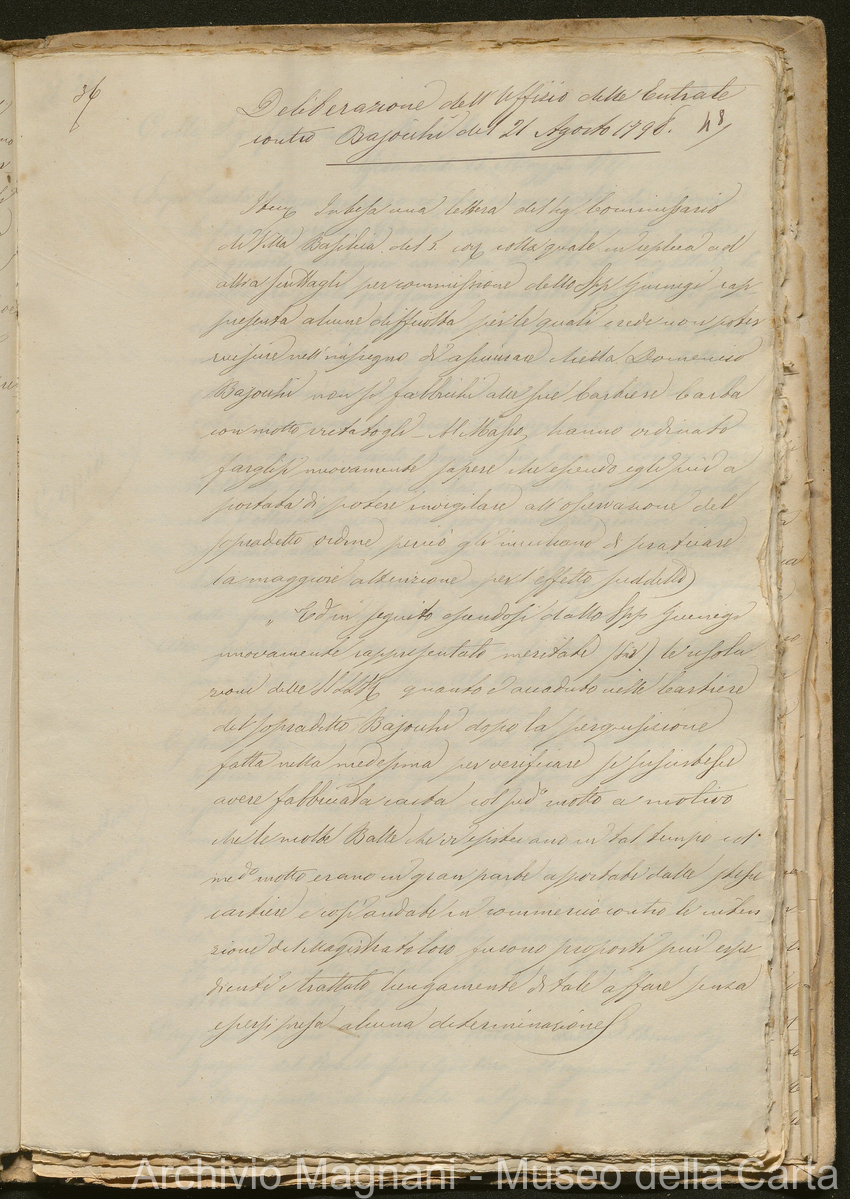 36
Deliberazione dell'Uffizio delle Entrate
contro Bajocchi del 21 Agosto 1798.
Intesa una lettera del Sig Commissario
di Villa Basilica del 5. colla quale in replica ad
altra per commissione dello Spp
presenta alcune difficoltà per le quali crede non poter
riescire nell'impegno di assicurare che da Domenico
Bajocchi non si fabbrichi alle sue Cartiere Carta
con motto vietatogli hanno ordinato
farglisi nuovamente sapere che essendo egli più a
portata di potere invigilare all'osservazione del
sopradetto ordine perciò gli di praticare
la maggiore attenzione per l'effetto suddetto
" Ed in seguito essendosi dallo Spp
nuovamente rappresentato meritare (sic) le resolu
zioni delle quanto è accaduto nelle Cartiere
del sopradetto Bajocchi dopo la perquisizione
fatta nella medesima per verificare se sussistesse
avere fabbricata carta col sudo motto a motivo
che le molte Balle che vi esistevano in tal tempo col
medo motto erano in gran parte asportate dalle stesse
cartiere e così andate in commercio contro le inten
zione del Magistrato loro furono proposti più espe
dienti e trattato lungamente di tale affare senza
essersi presa alcuna determinazione
Archivio Magnani - Museo della Carta